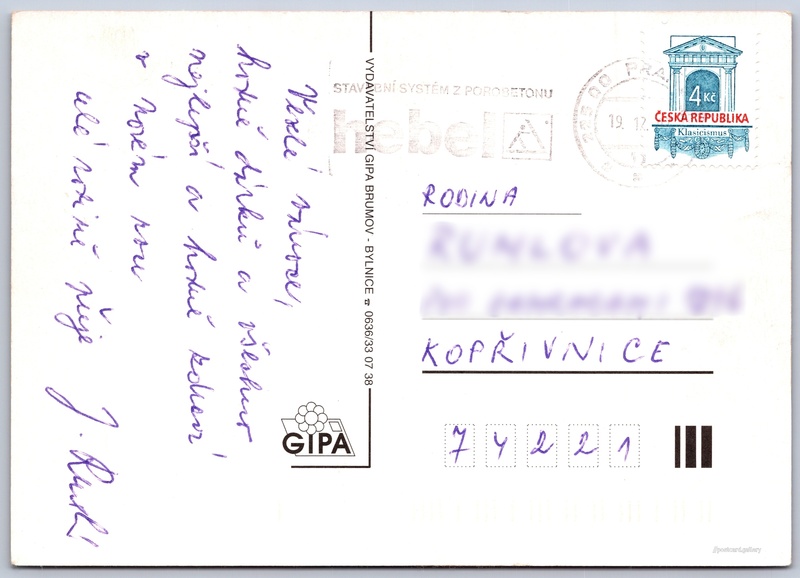 Veselé vánoce,
hodně dárků a všechno
nejlepší a hodně zdraví
v novém roce
celé rodině přeje
J.
VYDAVATELSTVÍ GIPA BRUMOV - BYLNICE ☎ 0636/33 07 38
GIPA
STAVEBNÍ SYSTÉM Z POROBETONU
hebel
PRA
19. 12.
4 Kč
ČESKÁ REPUBLIKA
Klasicismus
RODINA
KOPŘIVNICE
74221
postcard.gallery